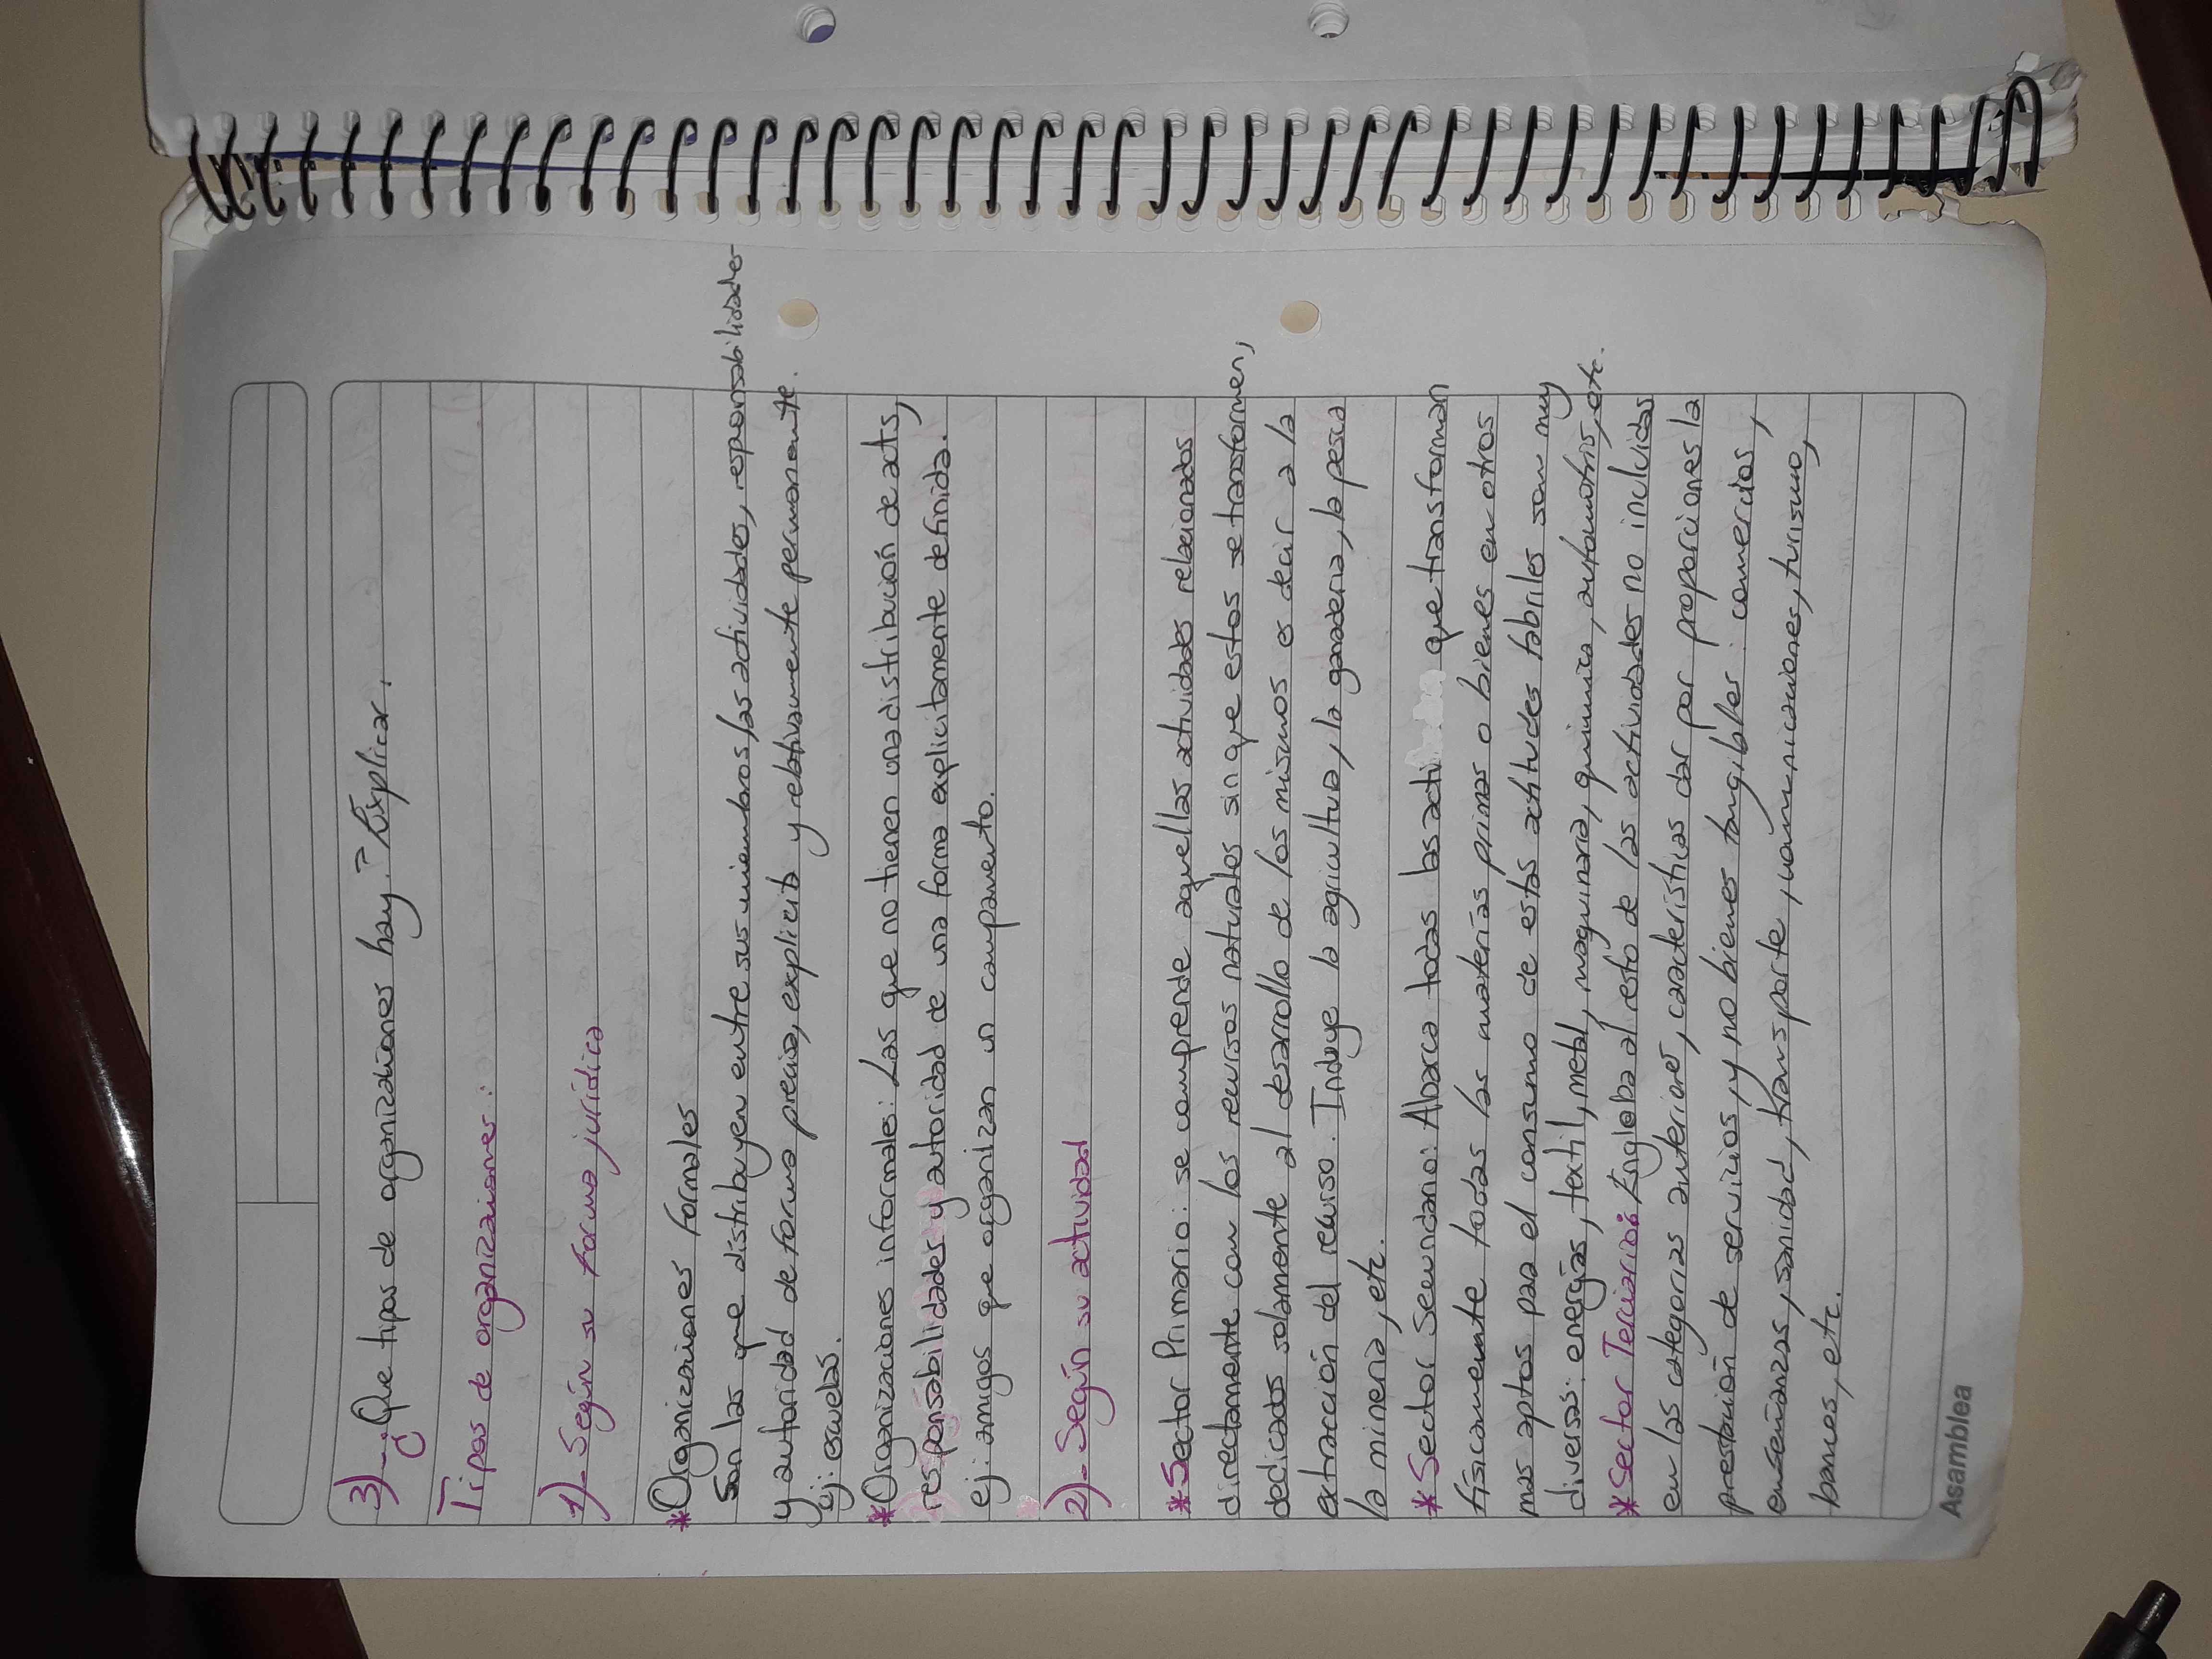 3)-¿Que tipos de organizaciones hay? Explicar.
Tipos de organizaciones:
1)- Según su forma jurídica
*Organizaciones formales
Son las que distribuyen entre sus miembros las actividades, responsabilidades
y autoridad de forma precisa, explicita y relativamente permanente.
Ej: escuelas.
*Organizaciones informales: Las que no tienen una distribución de acts,
responsabilidades y autoridad de una forma explicitamente definida.
ej: amigos que organizan un campamento.
2)- Según su actividad
*Sector Primario: se comprende aquellas actividades relacionados
directamente con los recursos naturales sin que estos se transformen,
dedicados solamente al desarrollo de los mismos es decir a la
extracción del recurso. Incluye la agricultura, la ganaderia, la pesca
la mineria, etc.
*Sector Secundario: Abarca todas las acti que transforman
físicamente todas las materías primas o bienes en otros
mas aptos para el consumo de estas actitudes fabriles son muy
diversas: energías, textil, metal, maquinaria, quimica, automotris, etc.
*Sector Terciario: Engloba al resto de las actividades no incluidas
en las categorias anteriores, caacteristicas dar por proporciones la
prestación de servicios, y no bienes tangibles: comercios,
enseñanzas, sanidad, transporte, comunicaciones, turismo,
bancos, etc.
Asamblea